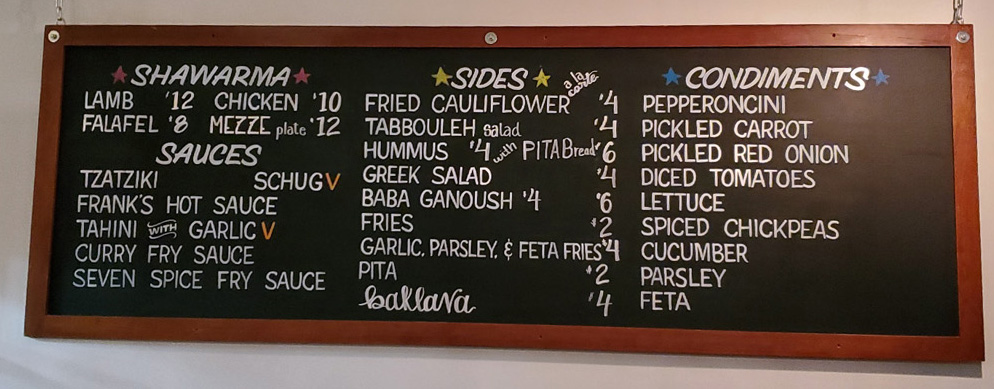 SHAWARMA
LAMB $12 CHICKEN $10
FALAFEL $8 MEZZE plate $12
SAUCES
TZATZIKI SCHUG V
FRANK'S HOT SAUCE
TAHINI WITH GARLIC V
CURRY FRY SAUCE
SEVEN SPICE FRY SAUCE
SIDES a la carte
FRIED CAULIFLOWER $4
TABBOULEH salad $4
HUMMUS $4 with PITA Bread $6
GREEK SALAD $4
BABA GANOUSH $4 $6
FRIES $2
GARLIC, PARSLEY, & FETA FRIES $4
PITA $2
baklava $4
CONDIMENTS
PEPPERONCINI
PICKLED CARROT
PICKLED RED ONION
DICED TOMATOES
LETTUCE
SPICED CHICKPEAS
CUCUMBER
PARSLEY
FETA